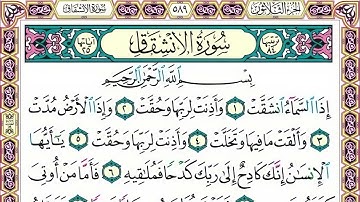 سُورَةُ الانشِقَاقِ ٥٨٩ الجزء الثلاثون
سُورَةُ الانْشِقَاقِ
آياتها ٢٥
بِسْمِ اللَّهِ الرَّحْمَٰنِ الرَّحِيمِ
إِذَا السَّمَاءُ انشَقَّتْ ١ وَأَذِنَتْ لِرَبِّهَا وَحُقَّتْ ٢ وَإِذَا الْأَرْضُ مُدَّتْ
٣ وَأَلْقَتْ مَا فِيهَا وَتَخَلَّتْ ٤ وَأَذِنَتْ لِرَبِّهَا وَحُقَّتْ ٥ يَا أَيُّهَا
الْإِنسَانُ إِنَّكَ كَادِحٌ إِلَىٰ رَبِّكَ كَدْحًا فَمُلَاقِيهِ ٦ فَأَمَّا مَنْ أُوتِيَ